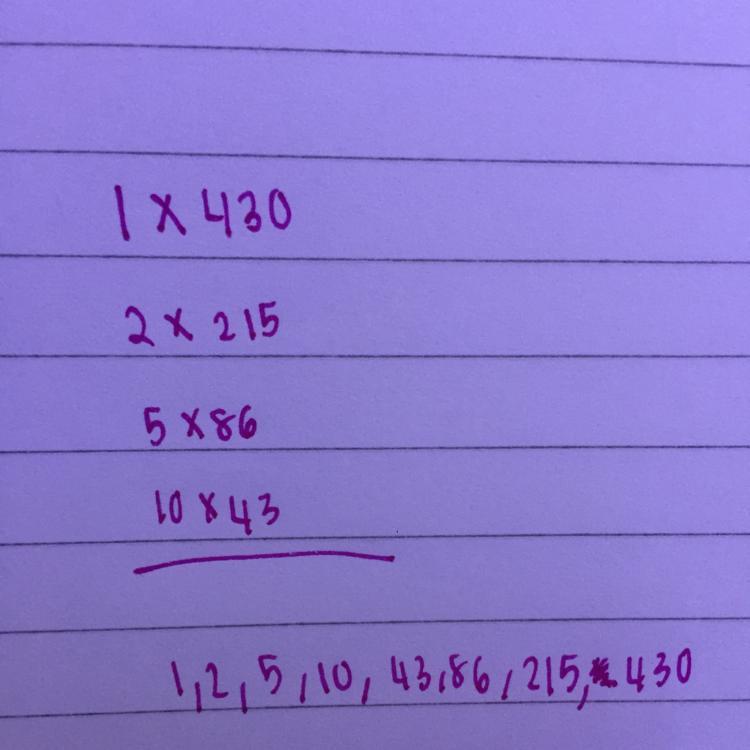 1 x 430
2 x 215
5 x 86
10 x 43
1, 2, 5, 10, 43, 86, 215, 430